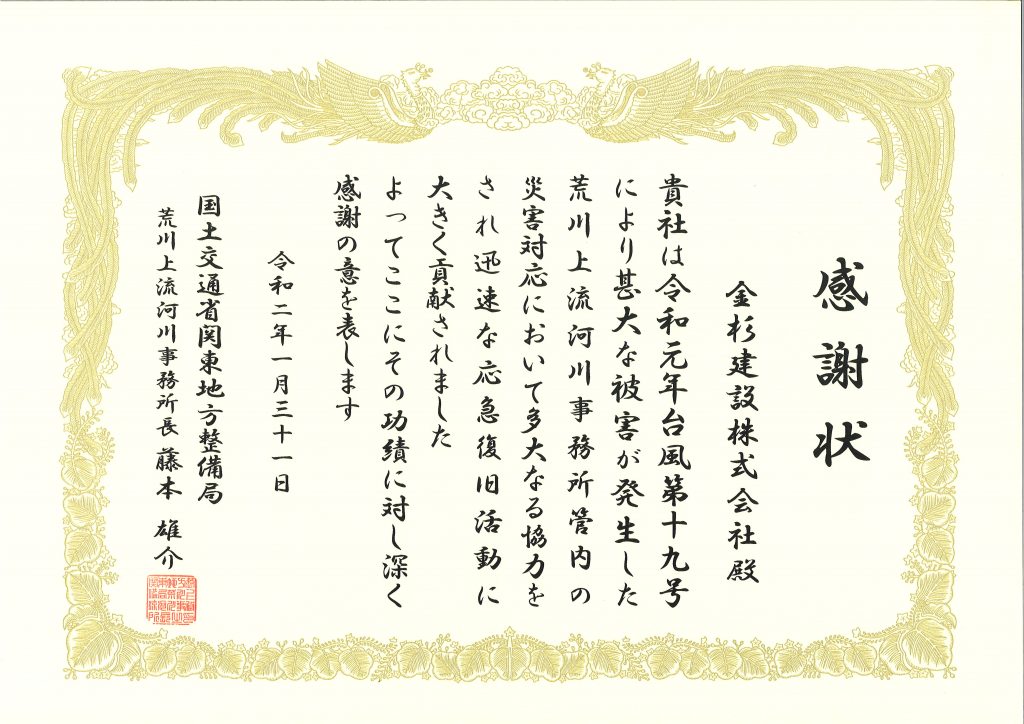 感謝状
金杉建設株式会社殿
貴社は令和元年台風第十九号
により甚大な被害が発生した
荒川上流河川事務所管内の
災害対応において多大なる協力を
され迅速な応急復旧活動に
大きく貢献されました
よってここにその功績に対し深く
感謝の意を表します
令和二年一月三十一日
国土交通省関東地方整備局
荒川上流河川事務所長 藤本 雄介